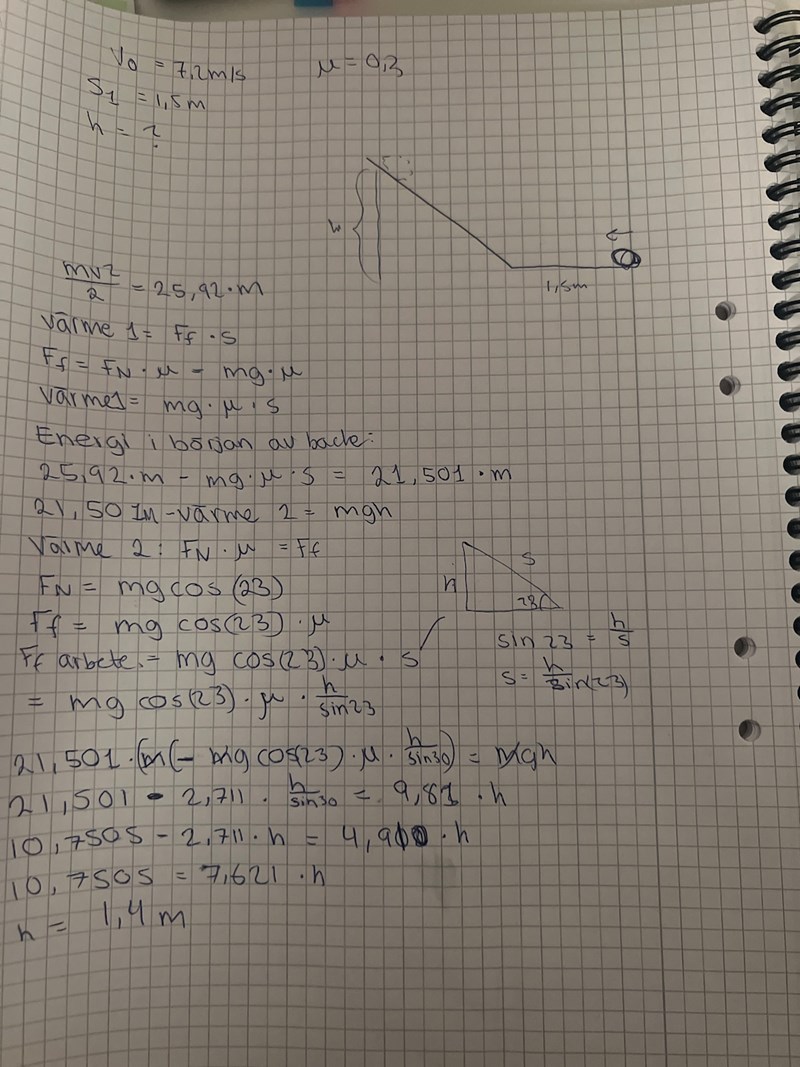 V₀ = 7,2 m/s
μ = 0,3
S₁ = 1,5 m
h = ?
h
1,5m
mv²/2 = 25,92 · m
Värme 1 = Ff · s
Ff = FN · μ - mg · μ
Värme1 = mg · μ · s
Energi i början av backe:
25,92 · m - mg · μ · s = 21,501 · m
21,501m - värme 2 = mgh
Värme 2: FN · μ = Ff
FN = mg cos(23)
Ff = mg cos(23) · μ
Ff arbete. = mg cos(23) · μ · s
= mg cos(23) · μ · h/sin23
h
s
23
sin 23 = h/s
s = h/sin(23)
21,501 · (m(- mg cos(23) · μ · h/sin30) = mgh
21,501 - 2,711 · h/sin30 = 9,81 · h
10,7505 - 2,711 · h = 4,910 · h
10,7505 = 7,621 · h
h = 1,4 m